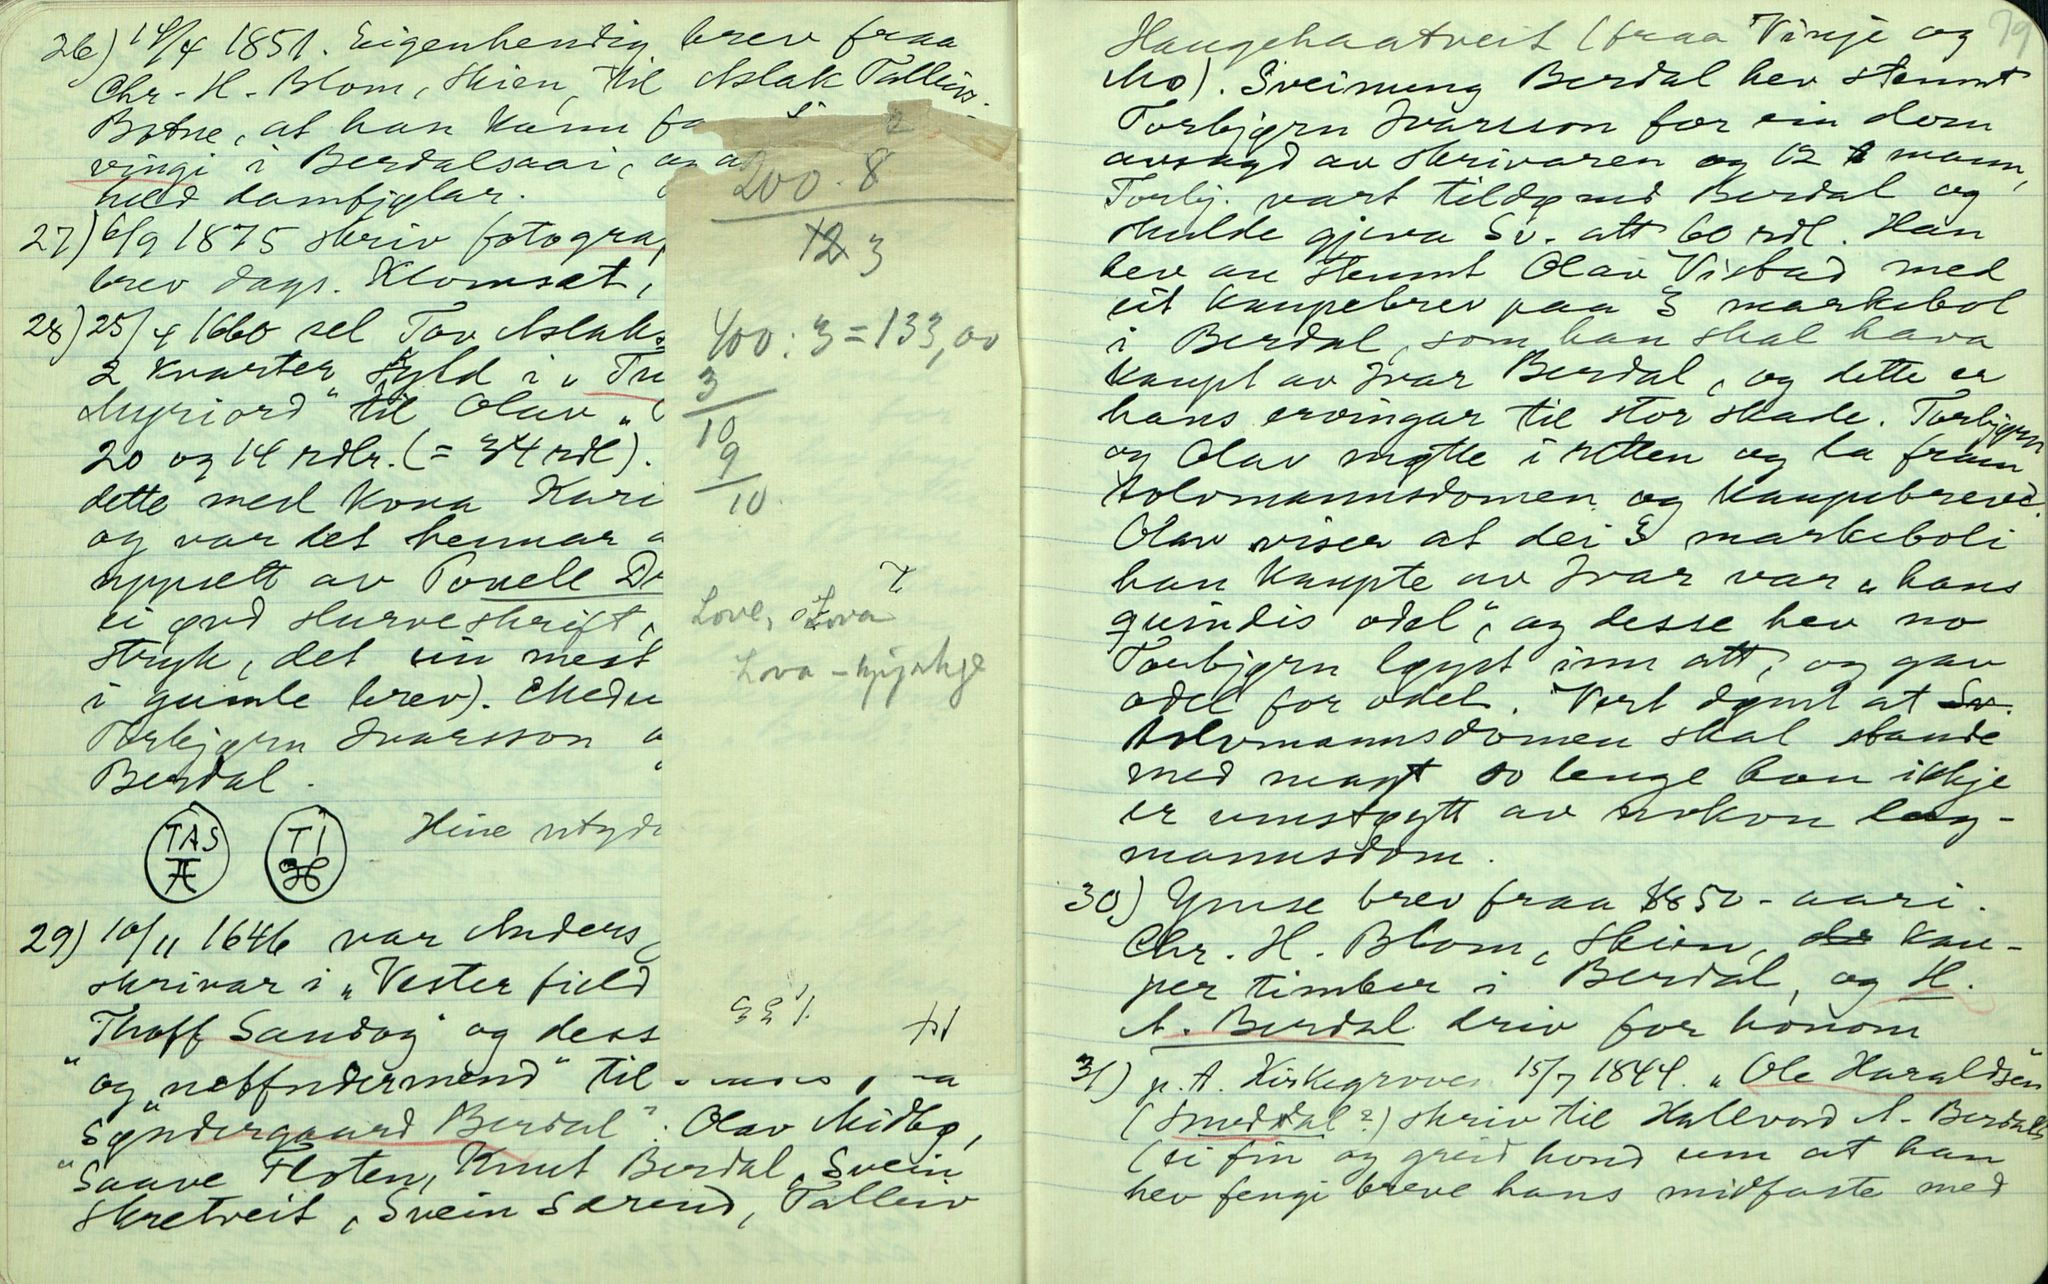 26) 14/4 1851. Eigenhendig brev fraa
Chr. H. Blom, Skien, til Aslak Talleivs.
Botne, at han kann fa
vingi i Berdalsaai, og a
med damfjølar.
27) 6/9 1875 skriv fotogra
brev dags. Klomset,
28) 25/4 1660 sel Tov Aslaks
2 kvarter skyld i "Tu
Myriord" til Olav "
20 og 14 rdlr. (= 34 rdl).
dette med kona Kari
og var det hennar o
uppsett av Povell Dr
ei god skurveskrift,
stryk, det ein mest
i gamle brev). Medu
Torbjørn Ivarsson o
Berdal.
TAS TI Hine utyde
29) 10/11 1646 var Anders
skrivar i "Vester field
Thoff Sandog" og dess
og "neffndermend" til
"Søndergaard Berdal": Olav Midbø,
"Saave Floten, Knut Berdal, Svein
Skretveit, Svein Særend, Talleiv
200 . 8
12 3
400 : 3 = 133,00
3
10
9
10
Love, Lova
Lova - kyrkje
79
Haugehaatveit (fraa Vinje og
Mo). Sveinung Berdal hev stemnt
Torbjørn Ivarsson for ein dom
avsagd av skrivaren og 12 mann,
Torbj. vart tildømd Berdal og
skulde gjeva Sv. att 60 rdl. Han
hev au stemnt Olav Vistad med
eit kaupebrev paa 3 markebol
i Berdal, som han skal hava
kaupt av Ivar Berdal, og dette er
hans ervingar til stor skade. Torbjørn
og Olav møtte i retten og la fram
tolvmannsdomen og kaupebrevet.
Olav viser at dei 3 markeboli
han kaupte av Ivar var "hans
quindis odel", og desse hev no
Torbjørn løyst inn att, og gav
odel for odel. Vert dømt at Sv.
tolvmannsdomen skal stande
med magt so lenge han ikkje
er umstøytt av nokon lag-
mannsdom.
30) Ymse brev fraa 1850-aari.
Chr. H. Blom, Skien, kau-
per timber i Berdal, og H.
A. Berdal driv for honom
31) p. t. Kirkegrover 15/7 1844. "Ole Haraldsen"
(Smeddal?) skriv til Hallvord A. Berdal
(ei fin og greid hond um at han
hev fengi breve hans midfaste med